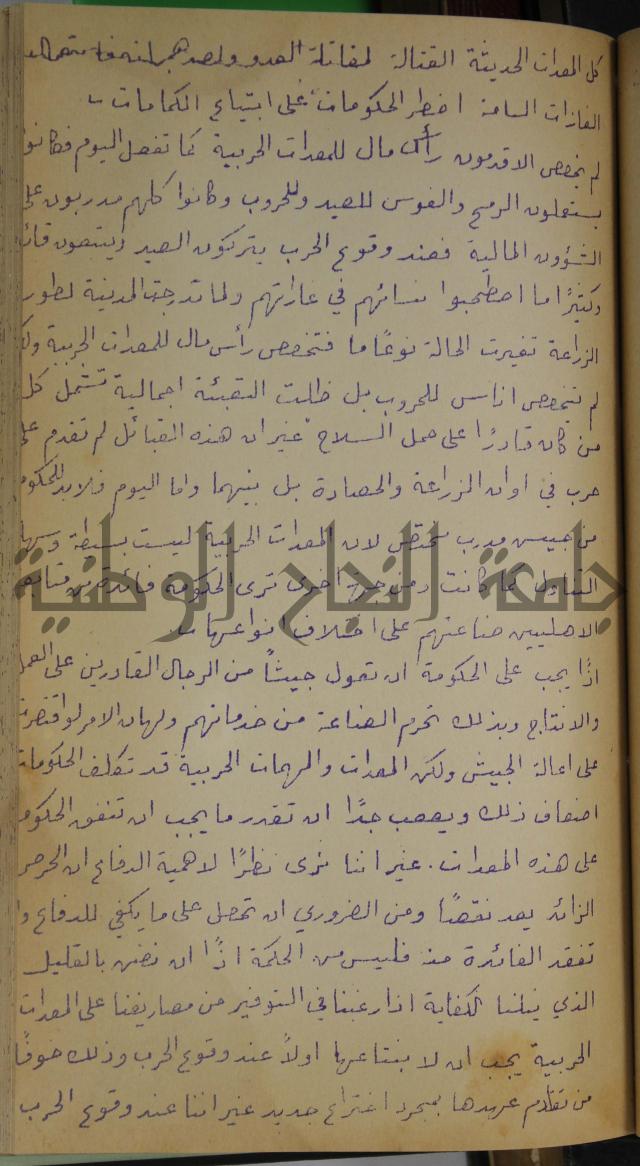 كل المعدات الحديثة القتالة لمقاتلة العدو ولصد
الغازات السامة اضطر الحكومات على ابتياع الكمامات
لم يخصص الاقدمون رأس مال للمعدات الحربية كما تفعل اليوم فكانوا
يستعملون الرمح والقوس للصيد وللحروب وكانوا كلهم مدربون على
الشؤون المالية فعند وقوع الحرب يتركون الصيد ويتبعون
وكثيرًا ما اصطحبوا نسائهم في غاراتهم ولما تدرجت المدينة لطور
الزراعة تغيرت الحالة نوعًا ما فتخصص رأس مال للمعدات الحربية
لم يتخصص اناس للحروب بل ظلت التعبئة اجمالية تشمل كل
من كان قادرًا على حمل السلاح غير ان هذه القبائل لم تقدم على
حرب في اوان الزراعة والحصادة بل بينهما واما اليوم فلا بد للحكومة
من جيش مدرب مختص لان المعدات الحربية ليست بسيطة وسهلة
التناول كما كانت ومن جهة اخرى ترى الحكومة فائدة من
الاهليين صناعتهم على اختلاف انواعها
جامعة النجاح الوطنية
اذًا يجب على الحكومة ان تعول جيشًا من الرجال القادرين على العمل
والانتاج وبذلك تحرم الصناعة من خدماتهم ولهان الامر لو اقتصرت
على اعالة الجيش ولكن المعدات والمهمات الحربية قد تكلف الحكومات
اضعاف ذلك ويصعب جدًا ان تقدر ما يجب ان تنفق الحكومة
على هذه المعدات. غير اننا نرى نظرًا لاهمية الدفاع ان الحرص
الزائد يعد نقصًا ومن الضروري ان تحصل على ما يكفي للدفاع
تفقد الفائدة منه فليس من الحكمة اذًا ان نضن بالقليل
الذي ينلنا الكفاية اذا رغبنا في التوفير من مصاريفنا على المعدات
الحربية يجب ان لا نبتاعها اولًا عند وقوع الحرب وذلك خوفًا
من تقادم عهدها بمجرد اختراع جديد غير اننا عند وقوع الحرب